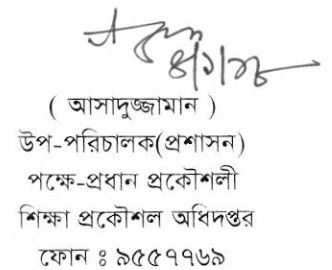 ৪/১/১৮
( আসাদুজ্জামান )
উপ-পরিচালক(প্রশাসন)
পক্ষে-প্রধান প্রকৌশলী
শিক্ষা প্রকৌশল অধিদপ্তর
ফোন ঃ ৯৫৫৭৭৬৯